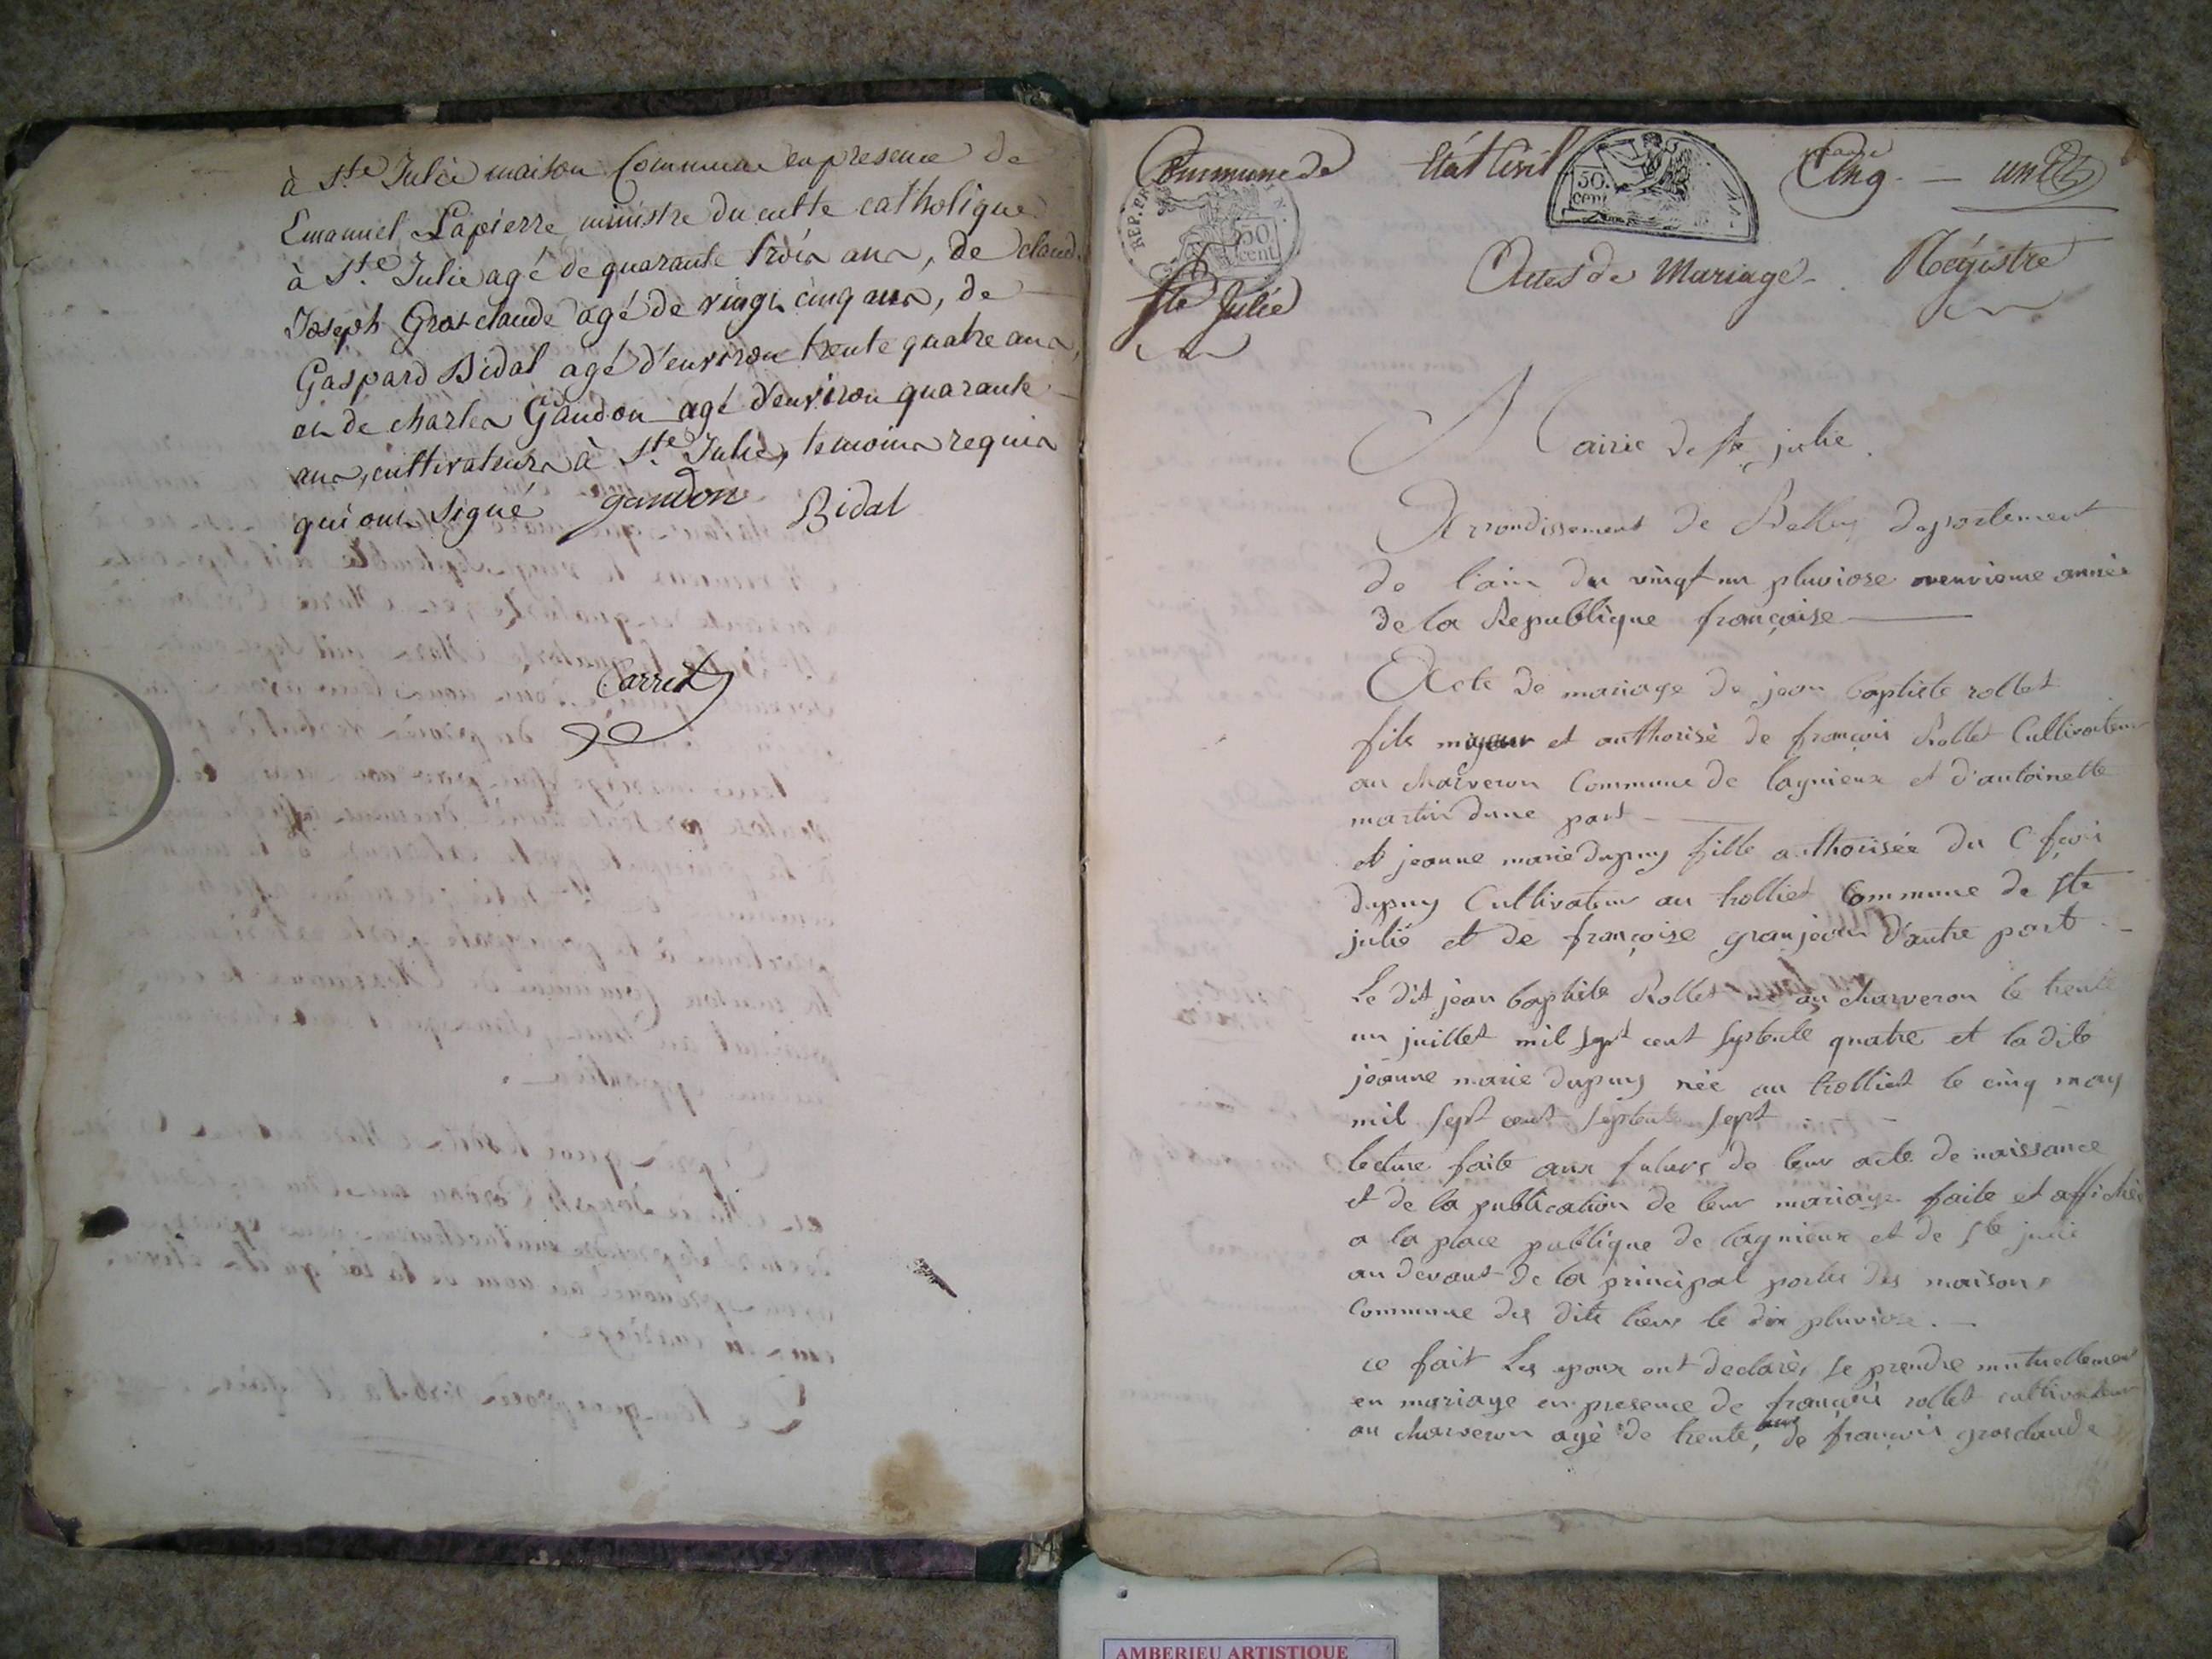 à Ste Julie maison Commune en presence de
Emanuel Lapierre ministre du culte catholique
à Ste Julie agé de quarante trois ans, de claude
Joseph Grosclaude agé de vingt cinq ans, de
Gaspard Bidal agé d'environ trente quatre ans,
et de charles Gandon agé d'environ quarante
ans, cultivateurs à Ste Julie, temoins requis
qui ont signé gandon Bidal
Carret
Commune de
Ste Julie
État Civil
50. cent
REP. FRA
50 cent
Cinq — un
Actes de Mariage - Régistre
Mairie de ste julie.
Arrondissement de Belley departement
de l'ain du vingt un pluviose neuvieme année
de la Republique française
Acte de mariage de jean baptiste rollet
fils majeur et authorisé de françois Rollet Cultivateur
au charveron Commune de lagnieux et d'antoinette
martin dune part
et jeanne marie dupuy fille authorisée du C fçois
dupuy Cultivateur au trolliet Commune de ste
julie et de françoise granjean d'autre part
Le dit jean baptiste Rollet né au charveron le trente
un juillet mil sept cent septente quatre et la dite
jeanne marie dupuy née au trolliet le cinq may
mil sept cent septente sept
lecture faite aux futurs de leur acte de naissance
et de la publication de leur mariage faite et affichée
a la place publique de lagnieux et de ste julie
au devant de la principal portes des maisons
Commune des dits lieux le dix pluviose.
ce fait Les epoux ont declarés se prendre mutuellement
en mariage en presence de françois rollet cultivateur
au charveron agé de trente ans, de françois grosclaude
AMBERIEU ARTISTIQUE